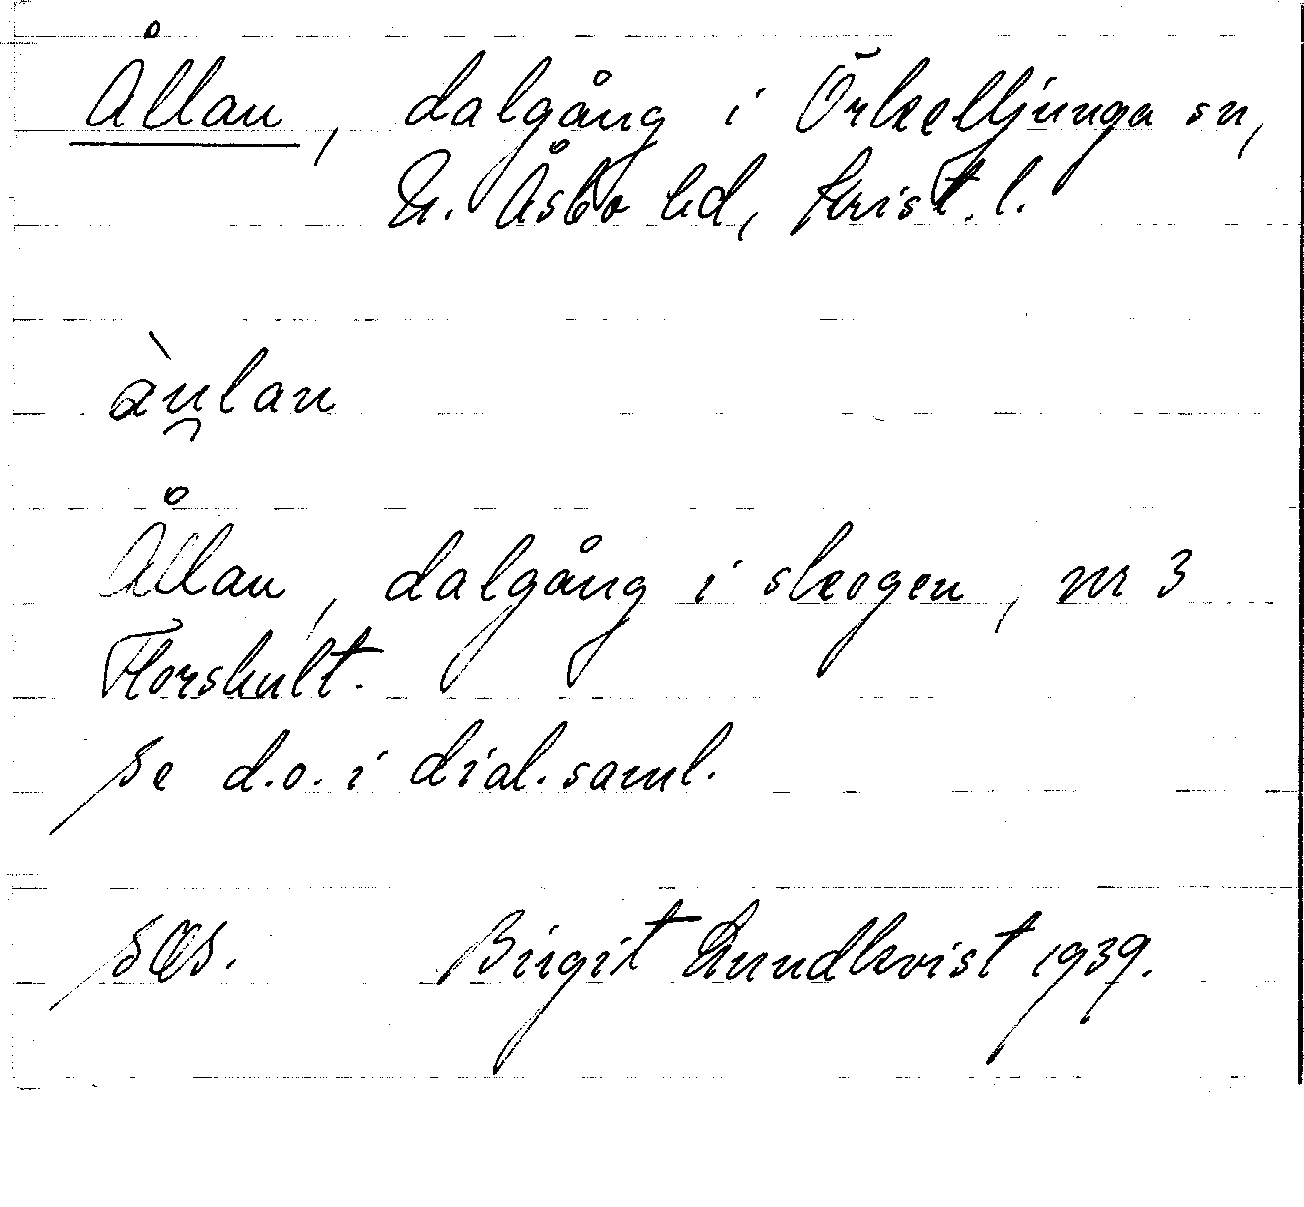 Ållan, dalgång i Örkelljunga sn,
N. Åsbo hd, Krist. l.
àu̯lan
Ållan, dalgång i skogen, nr 3
Florshult.
Se d.o. i dial. saml.
Birgit Lundkvist 1939.